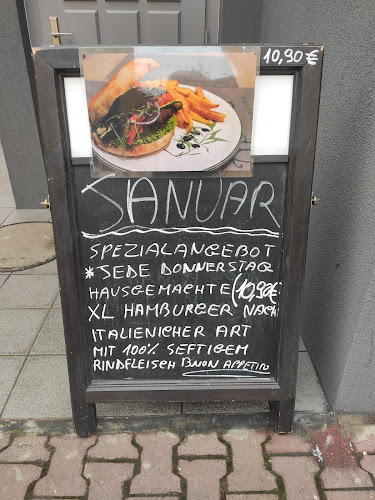 10,90 €
SANUAR
SPEZIALANGEBOT
* SEDE DONNERSTAG
HAUSGEMACHTE (10,90€)
XL HAMBURGER NACH
ITALIENICHER ART
MIT 100% SEFTIGEM
RINDFLEISCH BUON APPETITO